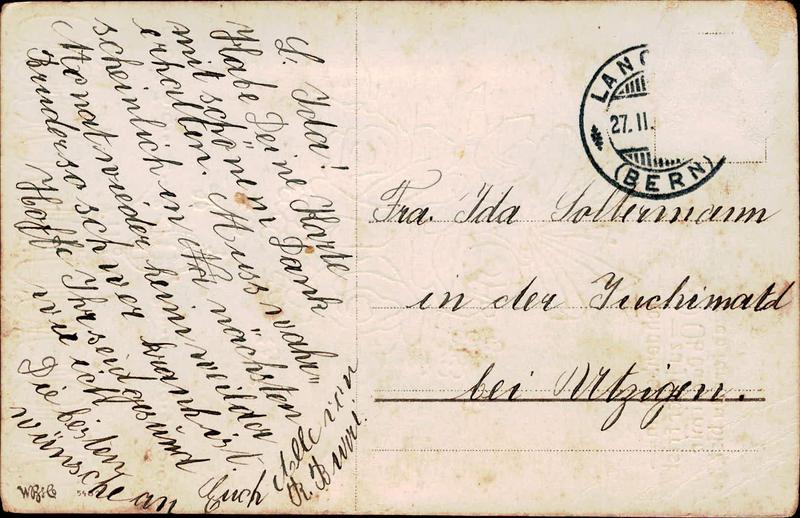 L. Ida!
Habe Deine Karte
mit schönem Dank
erhalten. Muss wahr"
scheinlich in nächsten
Monat wieder heim weil der
Bruder so schwer krank ist.
Hoffe Ihr seid gesund
wie ich
Die besten
wünsche an Euch Alle von
R. Burri
LANG
27. II.
(BERN)
Fra. Ida Soltermann
in der Juchiwald
bei Utzigen.